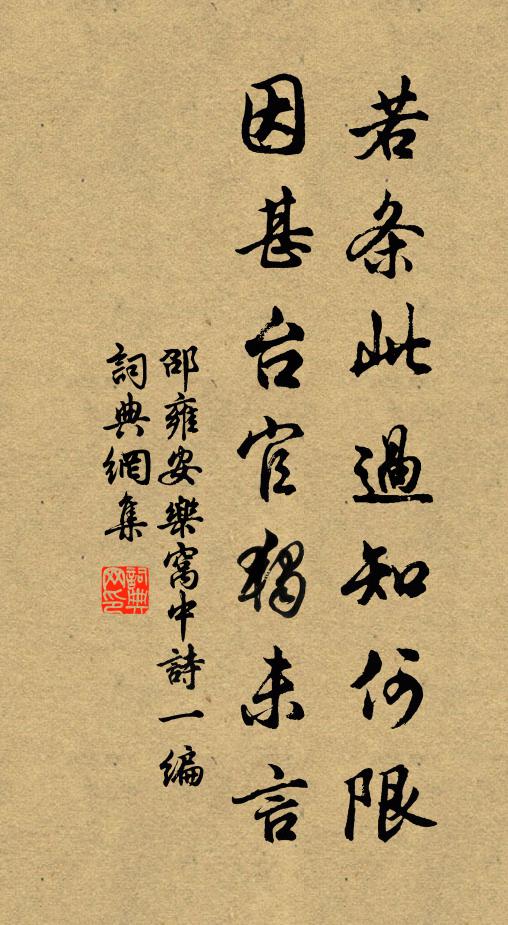 若条此過知何限
因甚台官獨未言
邵雍安樂窩中詩一编
詞典網集
詞典網印